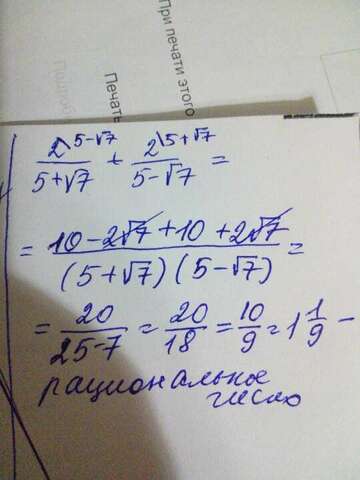 При печати этого
Печать
2\5-√7 / 5+√7 + 2\5+√7 / 5-√7 =
= 10-2√7+10+2√7 / (5+√7)(5-√7) =
= 20/25-7 = 20/18 = 10/9 = 1 1/9 -
рациональное
число